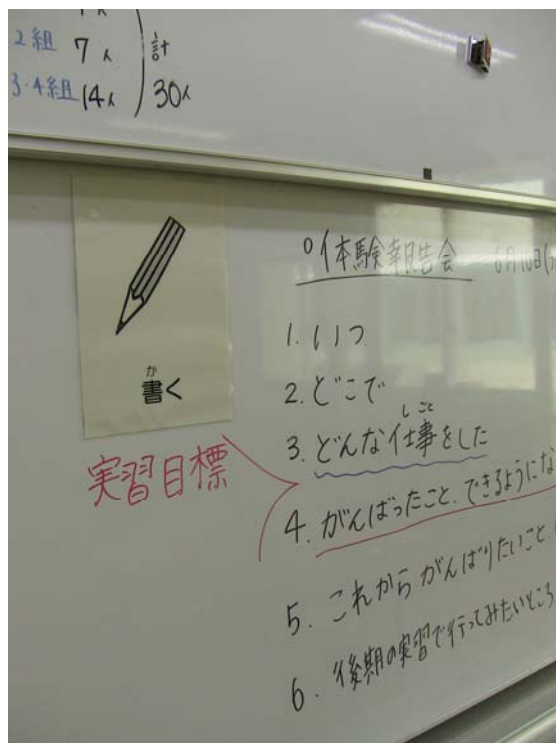 2組 7人
計
3・4組 14人
30人
か
書く
○体験報告会 6月10日
1. いつ
2. どこで
しごと
3. どんな仕事をした
実習目標
4. がんばったこと、できるようにな
5. これからがんばりたいこと、
6. 後期の実習で行ってみたいところ